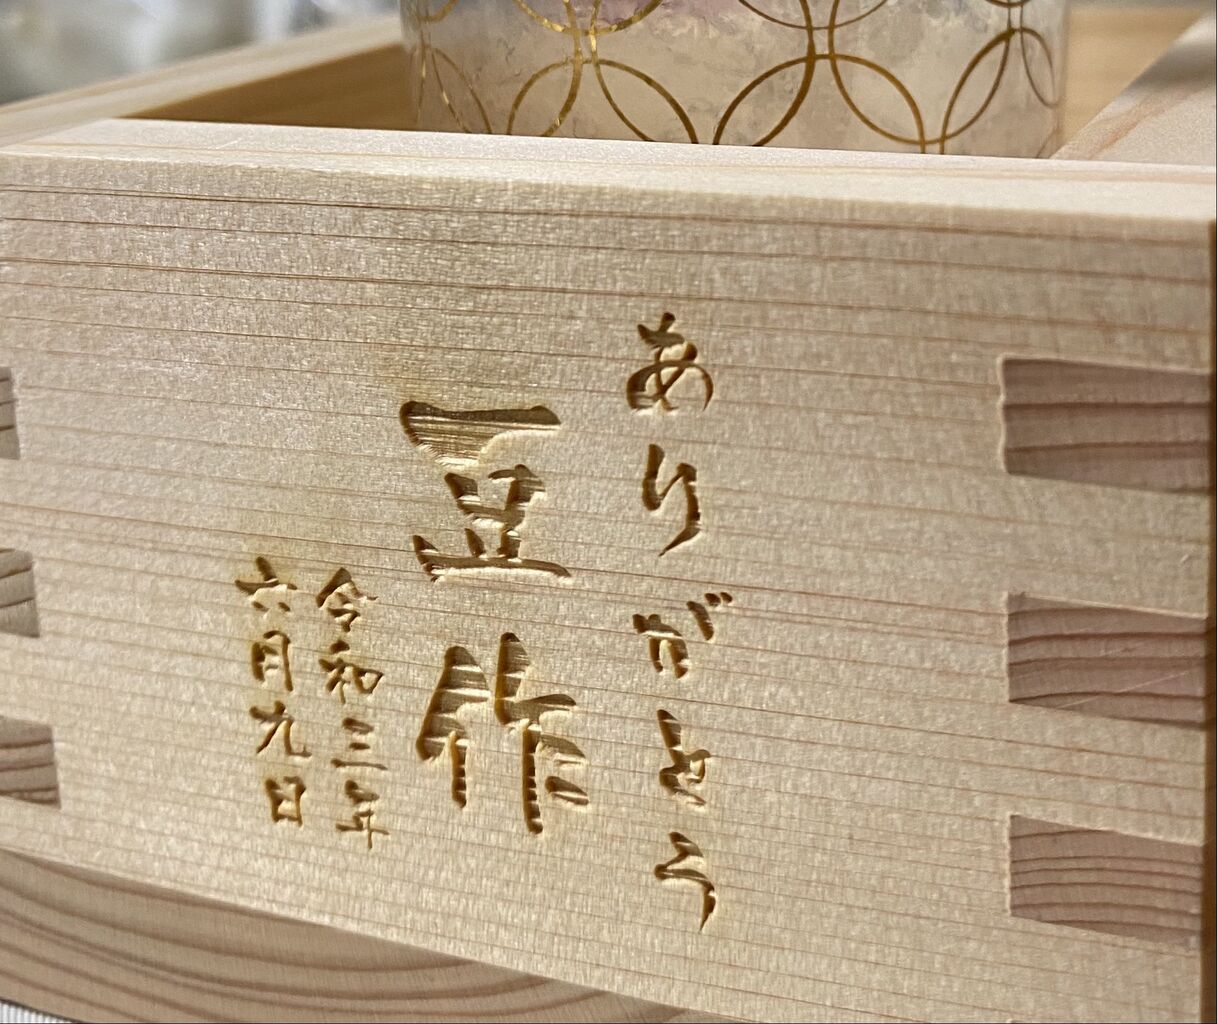 ありがとう
豆作
令和三年
六月九日